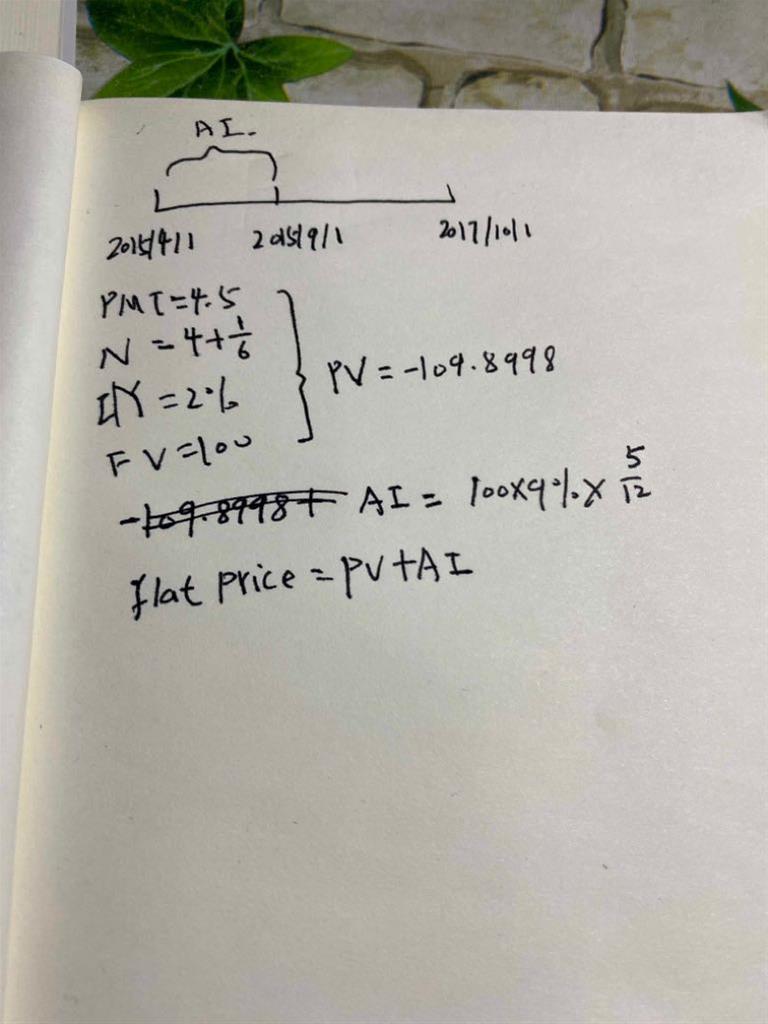 AI.
2015/4/1 2015/9/1 2017/10/1
PMT=4.5
N=4+1/6
I/Y=2%
FV=100
PV=-109.8998
-109.8998+ AI= 100×9%×5/12
flat price=PV+AI